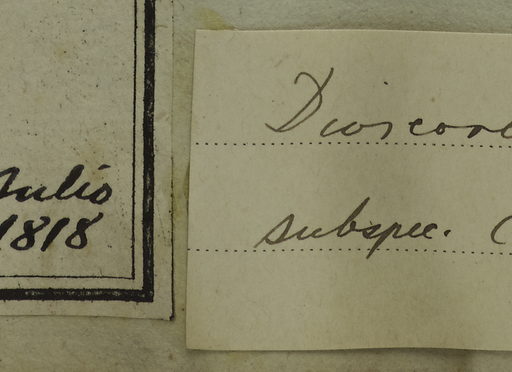 Julio
1818
Dioscore
subspec. (